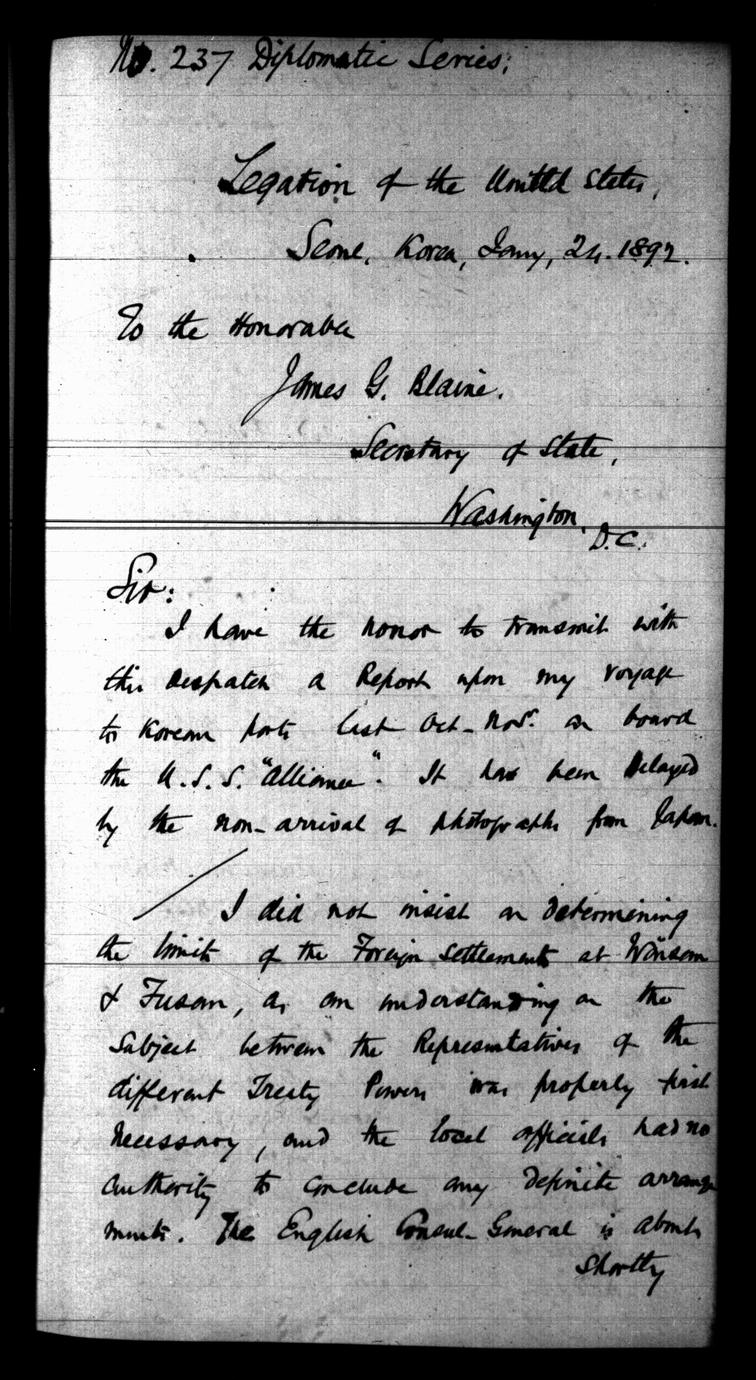 No. 237 Diplomatic Series;
Legation of the United States,
Seoul, Korea, Jany, 24. 1892.
To the Honorable
James G. Blaine.
Secretary of State,
Washington,
D.C.
Sir:
I have the honor to transmit with
this Despatch a Report upon my voyage
to Korean ports last Oct-Nov. on board
the U.S.S. "Alliance". It has been delayed
by the non-arrival of photographs from Japan.
I did not insist on determining
the limits of the Foreign Settlements at Wönsan
& Fusan, as an understanding on the
subject between the Representatives of the
different Treaty Powers was properly first
necessary, and the local officials had no
authority to conclude any definite arrange
ments. The English Consul-General is about
shortly